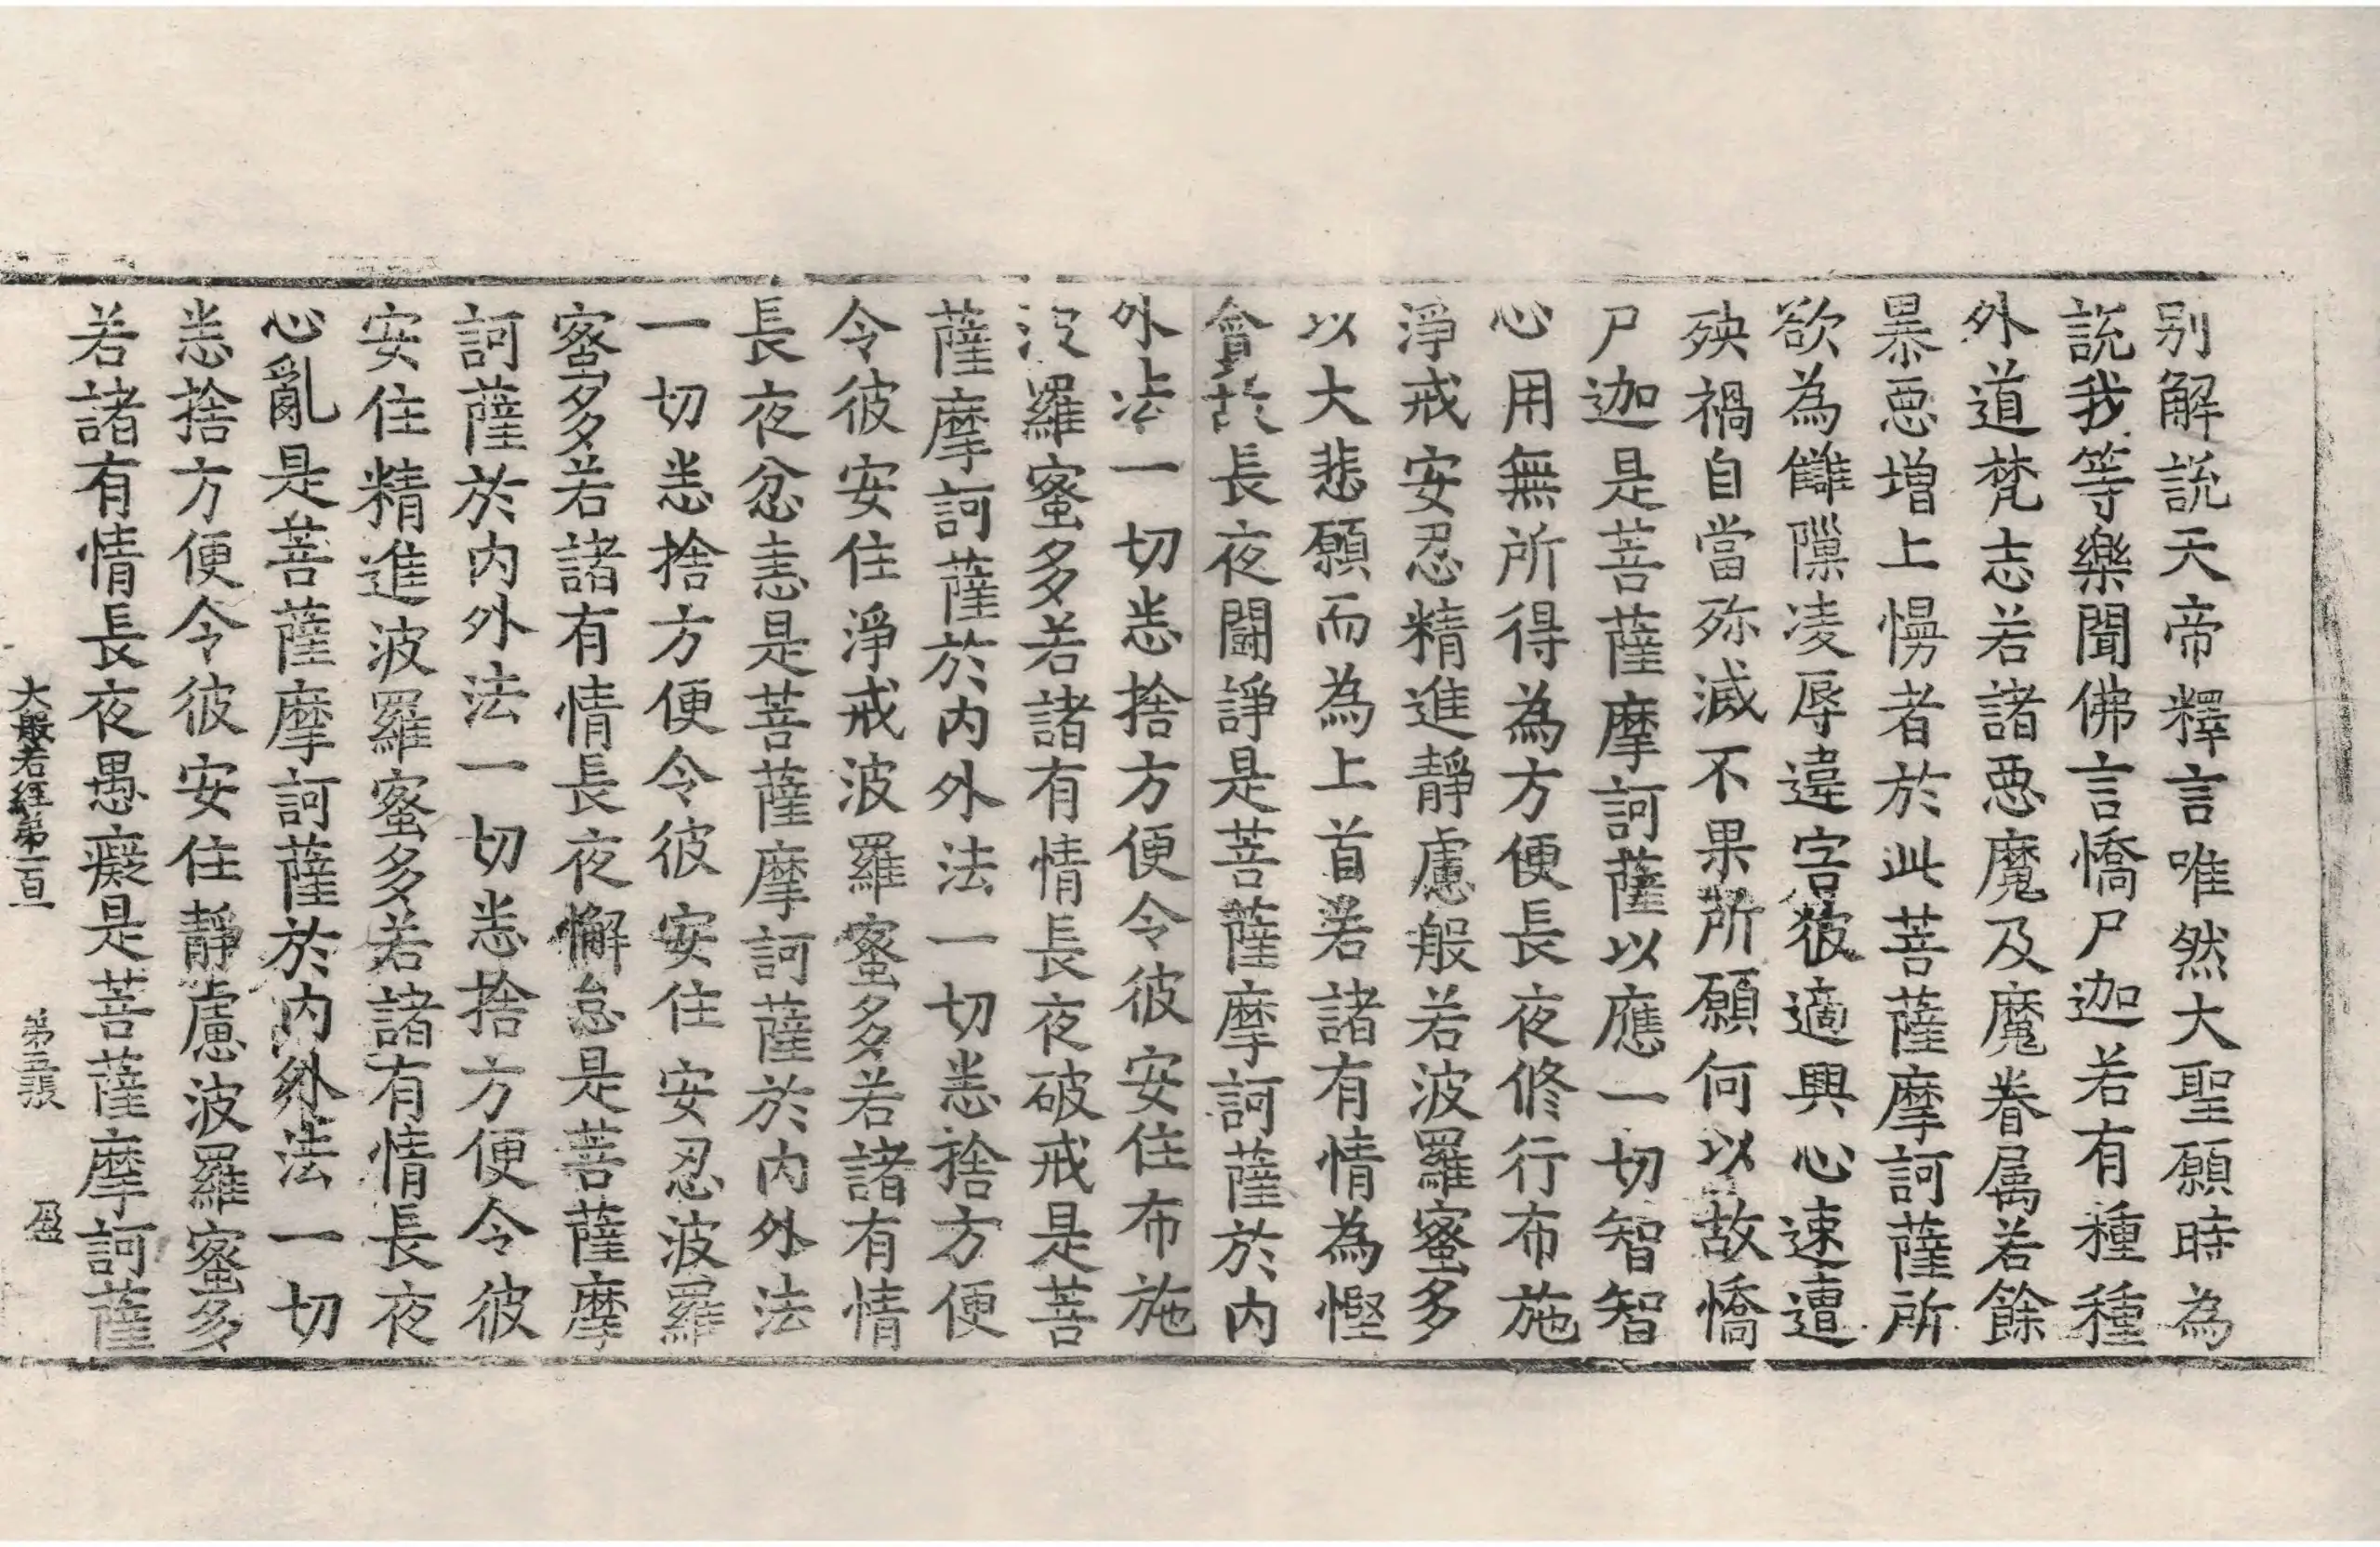 别解說天帝釋言唯然大聖願時為
說我等樂聞佛言憍尸迦若有種種
外道梵志若諸惡魔及魔眷屬若餘
暴惡增上慢者於此菩薩摩訶薩所
欲為讎隟凌辱違害彼適興心速遭
殃禍自當殄滅不果所願何以故憍
尸迦是菩薩摩訶薩以應一切智智
心用無所得為方便長夜修行布施
淨戒安忍精進靜慮般若波羅蜜多
以大悲願而為上首若諸有情為慳
貪故長夜鬪諍是菩薩摩訶薩於內
外法一切悉捨方便令彼安住布施
波羅蜜多若諸有情長夜破戒是菩
薩摩訶薩於內外法一切悉捨方便
令彼安住淨戒波羅蜜多若諸有情
長夜忿恚是菩薩摩訶薩於內外法
一切悉捨方便令彼安住安忍波羅
蜜多若諸有情長夜懈怠是菩薩摩
訶薩於內外法一切悉捨方便令彼
安住精進波羅蜜多若諸有情長夜
心亂是菩薩摩訶薩於內外法一切
悉捨方便令彼安住靜慮波羅蜜多
若諸有情長夜愚癡是菩薩摩訶薩
大般若經第一百一 第五張 盈